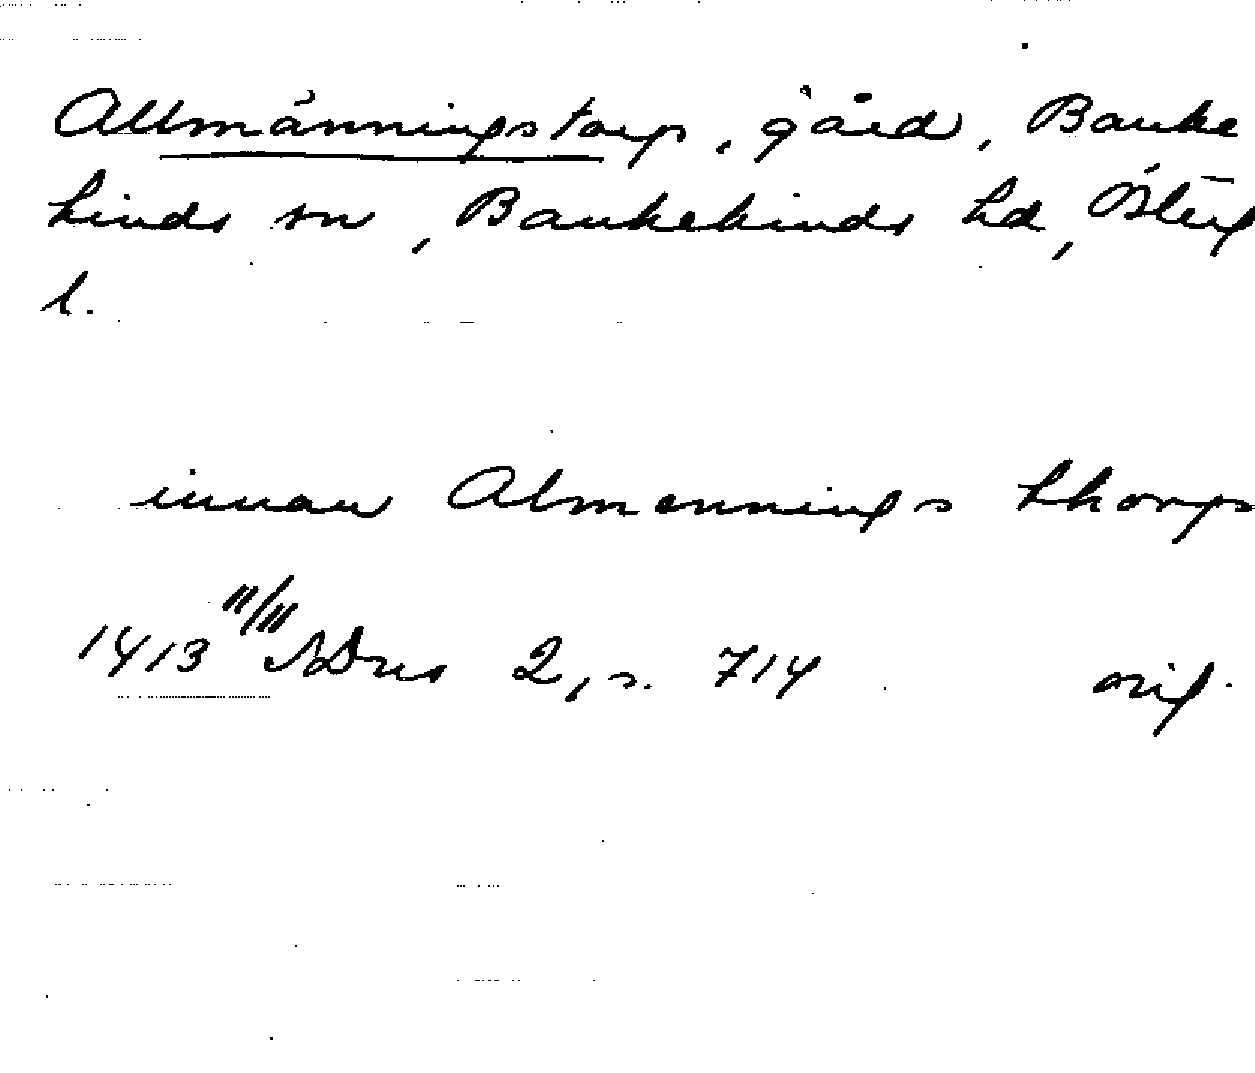 Allmänningstorp, gård, Banke
kinds sn, Bankekinds hd, Österg
l.
innan Almennings thorp
1413 11/11 SDns 2, s. 714 orig.